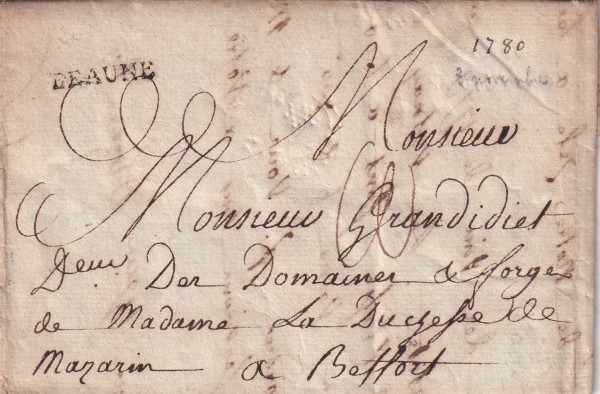 1780
BEAUNE
Monsieur
Monsieur Grandidier
Der Domainer & forge
de Madame La Duchesse de
Mazarin a Beffort